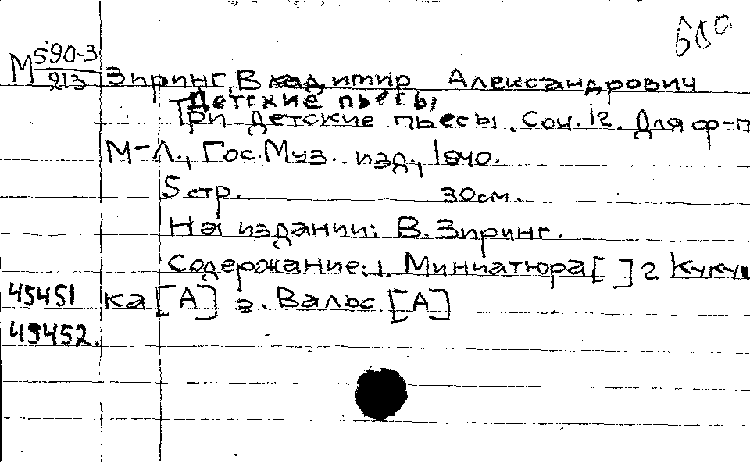 600
М 590-3
913 Зиринг, Владимир Александрович
Детские пьесы
Три детские пьесы. Соч. 12. Для ф-п
М-Л., Гос. Муз. изд., 1940.
5 стр. 30 см.
На издании: В. Зиринг.
Содержание: 1. Миниатюра [ ] 2 Кукуш
45451 ка [А] 3. Вальс. [А]
49452.